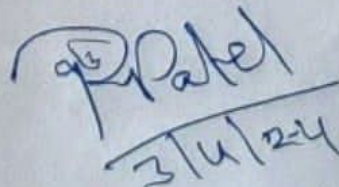 RPatel
3/4/24